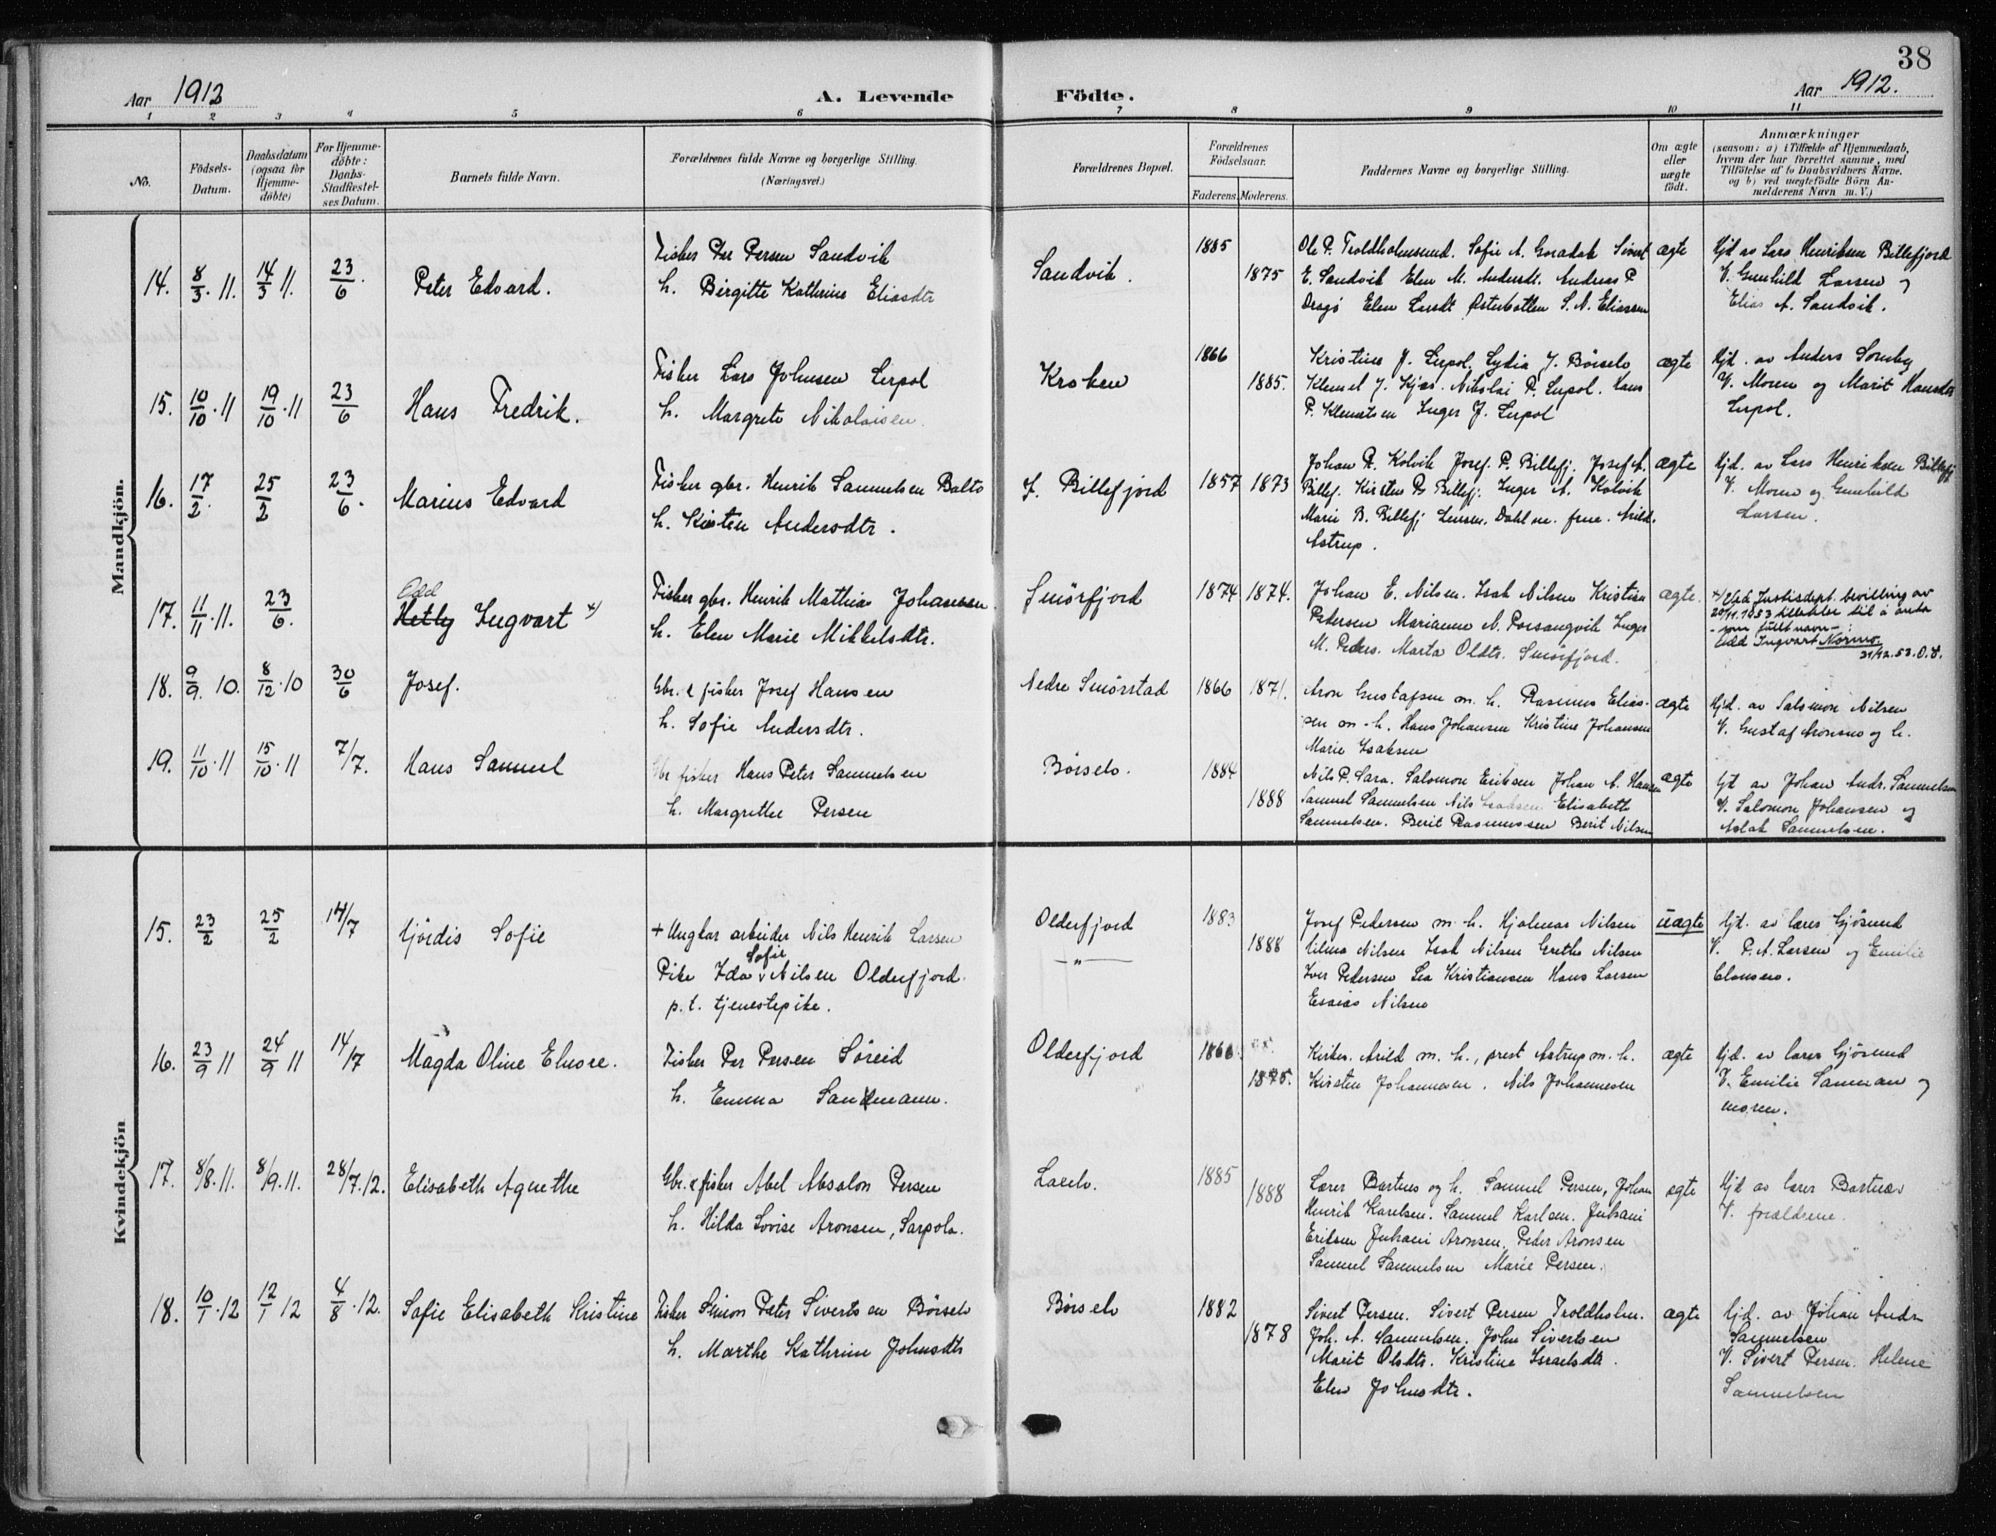 38
Aar 1912 A. Levende Födte. Aar 1912.
1 2 3 4 5 6 7 8 9 10 11
No.
Födsels-Datum.
Daabsdatum (ogsaa for Hjemme-döbte)
For Hjemme-döbte: Daabs-Stadfæstel-ses Datum.
Barnets fulde Navn.
Forældrenes fulde Navne og borgerlige Stilling.
(Næringsvei.)
Forældrenes Bopæl.
Forældrenes Födselsaar.
Faderens. Moderens.
Faddernes Navne og borgerlige Stilling.
Om ægte eller uægte födt.
Anmærkninger
(saasom: a) i Tilfælde af Hjemmedaab,
hvem der har forrettet samme, med
Tilföielse af to Daabsvidners Navne,
og b) ved uægtefödte Börn An-
melderens Navn m. V.)
Mandkjön.
14. 8/3 11. 14/3 11. 23/6. Peter Edvard.
Fisker Per Persen Sandvik
h. Birgitte Kathrine Eliasdtr
Sandvik. 1885 1875
Ole P. Troldholmsund. Sofie A. Sivert
E. Sandvik Elen M. Andersdt. Andreas P
Elen Østerbotten S. N. Eliassen
ægte
Hjd av Lars Henriksen Billefjord
V. Gunhild Larsen og
Elias A. Sandvik.
15. 10/10 11 19/10 11 23/6 Hans Fredrik.
Fisker Lars Johnsen Lerpol
h. Margrete Nikolaisen
Kroken 1866 1885.
Kristine J. Lerpol, Lydia J. Børselv
Klemet J. Kjæs. Nikolai P. Lerpol. Hans
P. Klemetsen Inger J. Lerpol
ægte
Hjd. av Anders Somby
V. Moren og Marit Hansdtr
Lerpol.
16. 17/2 25/2 23/6. Marius Edvard
Fisker gbr. Henrik Samuelsen Balto
h. Kirsten Andersdtr.
Y. Billefjord 1857 1873
Johan P. Kolvik Josef P. Billefj. Josef A.
Billef. Kirsten P. Billefj. Inger A. Kolvik
Marie B. Billefj Lensm. Dahl m. frue. Arild.
Astrup.
ægte
Hjd. av Lars Henriksen Billefj
V. Moren og Gunhild
Larsen.
17. 11/11 11. 23/6. Odd
Hetly Ingvart x)
Fisker gbr. Henrik Mathias Johansen.
h. Elen Marie Mikkelsdtr.
Smörfjord 1874 1874.
Johan E. Nilsen. Isak Nilsen Kristian
Pedersen Marianne N. Porsangvik Inger
M. Peders. Marta Oldtr. Smörfjord.
ægte.
x) Ved Justisdept. bevilling av
20/11.1953 tillatelse til å anta
- som fullt navn - :
Odd Ingvart Normo
31/12.53. O.V.
18. 9/9. 10. 8/12 10 30/6 Josef.
Gbr. & fisker Josef Hansen
h. Sofie Andersdtr.
Nedre Smörstad 1866 1871.
Aron Gustafsen m. h. Rasmus Elias-
sen m. h. Hans Johansen Kristine Johansen
Marie Isaksen
ægte
Hjd. av Salomon Nilsen
V. Gustaf Aronsen og h.
19. 11/10 11 15/10 11 7/7. Hans Samuel
Gbr fisker Hans Peter Samuelsen
h. Margrethe Persen
Börselv. 1884 1888
Nils P. Sara. Salomon Eriksen Johan A. Hansen
Samuel Samuelsen Nils Isaksen Elisabeth
Samuelsen. Berit Rasmussen Berit Nilsen
ægte
hjd av Johan Andr. Samuelsen
V. Salomon Johansen og
Aslak Samuelsen.
Kvindekjön
15. 23/2 25/2 14/7 Hjördis Sofie
+ Ungkar arbeider Nils Henrik Larsen
Sofie
Pike Ida v Nilsen Olderfjord.
p. t. tjenestepike.
Olderfjord 1883
- " - 1888
Josef Pedersen m. h. Hjalmar Nilsen
Vilma Nilsen Isak Nilsen Grethe Nilsen
Iver Pedersen Lea Kristiansen Hans Larsen
Esaias Nilsen
uægte
hjd. av lærer Gjösund
V. P. A. Larsen og Emilie
Clausen.
16. 23/9 11 24/9 11 14/7 Magda Oline Elnore.
Fisker Per Persen Søreid
h. Emma Sandmann.
Olderfjord 1860 1875.
Kirkes. Arild m. h., prest Astrup m. h.
Kirsten Johannesen. Nils Johannesen
ægte
Hjd. av lærer Gjösund
V. Emilie Sanman og
moren.
17. 8/8. 11. 8/9. 11. 28/7. 12. Elisabeth Agnethe
Gbr. & fisker Abel Absalon Persen
h. Hilda Lovise Aronsen, Sarpola.
Laelv. 1885 1888
Lærer Bartnes og h. Samuel Persen, Johan
Henrik Karelsen. Samuel Karlsen. Juhani
Eriksen Juhani Aronsen, Peder Aronsen
Samuel Samuelsen Marie Persen.
ægte
Hjd av lærer Bartnes
V. forældrene.
18. 10/1 12 12/1 12 4/8. 12. Sofie Elisabeth Kristine
Fisker Simon Peter Sivertsen Børselv
h. Marthe Kathrine Johnsdtr
Börselv 1882 1878
Sivert Persen. Sivert Persen Troldholm.
Joh. A. Samuelsen. John Sivertsen
Marit Olsdtr. Kristine Israelsdtr.
Elen Johnsdtr.
ægte
Hjd. av Johan Andr
Samuelsen
V. Sivert Persen. Helene
Samuelsen